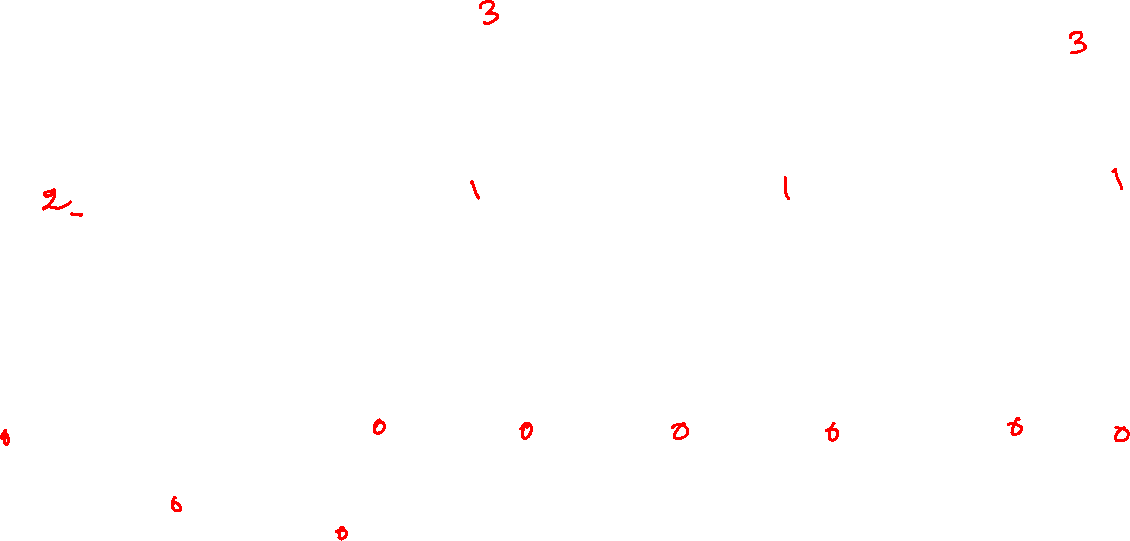 3
3
2 1 1 1
0 0 0 0 0 0 0
0
0